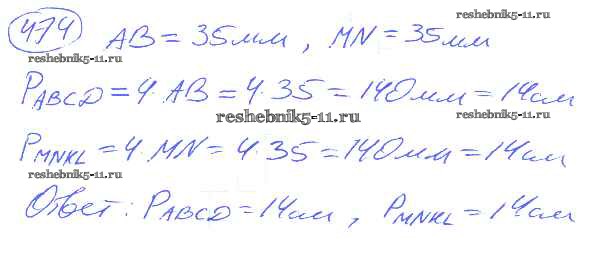 474 AB = 35мм, MN = 35мм
reshebnik5-11.ru reshebnik5-11.ru
P_ABCD = 4·AB = 4·35 = 140мм = 14см
reshebnik5-11.ru reshebnik5-11.ru
reshebnik5-11.ru
P_MNKL = 4·MN = 4·35 = 140мм = 14см
reshebnik5-11.ru reshebnik5-11.ru
Ответ: P_ABCD = 14см, P_MNKL = 14см